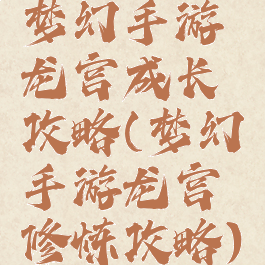 梦幻手游
龙宫成长
攻略(梦幻
手游龙宫
修炼攻略)